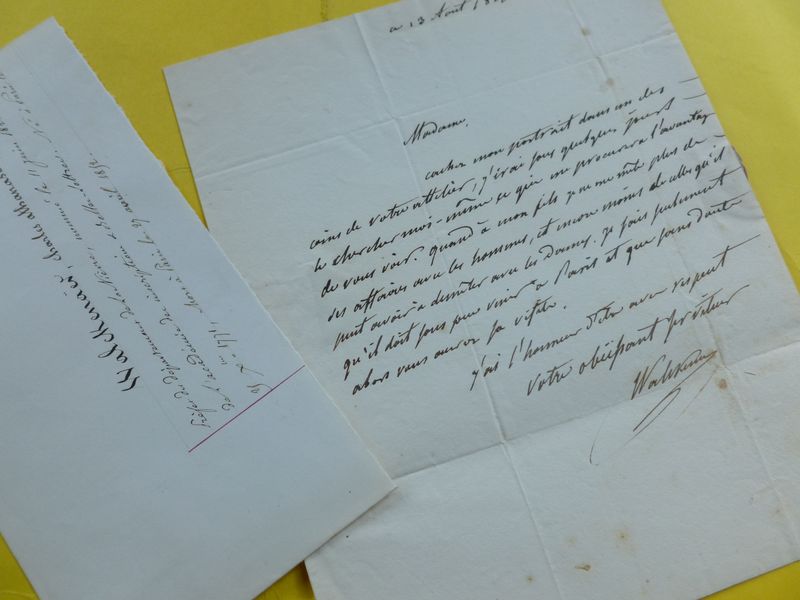 a 13 Août
Madame,
cacher mon portrait dans un des
coins de votre attelier, j'irai sous quelques jours
le chercher moi-même ce qui me procurera l'avantage
de vous voir. quand à mon fils je ne me mêle plus de
ses affaires avec les hommes, et encore moins de celles qu'il
peut avoir à demêler avec les Dames. je sais seulement
qu'il doit sous peu venir à Paris et que sans doute
alors vous aurez sa visite.
j'ai l'honneur d'etre avec respect
votre obéissant serviteur
Walckenaer
Walckenaër, Charles athanase
Préfet du Département de la Nièvre,
de l'académie des inscriptions et belles lettres. Né à Paris le
25 Xbre 1771, mort à Paris le 27 avril 1852.